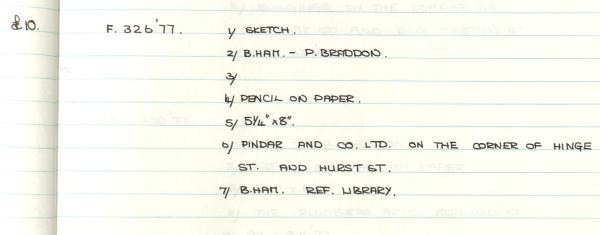 £10. F. 326'77. 1/ SKETCH.
2/ B.HAM. - P. BRADDON.
3/
4/ PENCIL ON PAPER.
5/ 5¼" x 8".
6/ PINDAR AND CO. LTD. ON THE CORNER OF HINGE
ST. AND HURST ST.
7/ B.HAM. REF. LIBRARY.